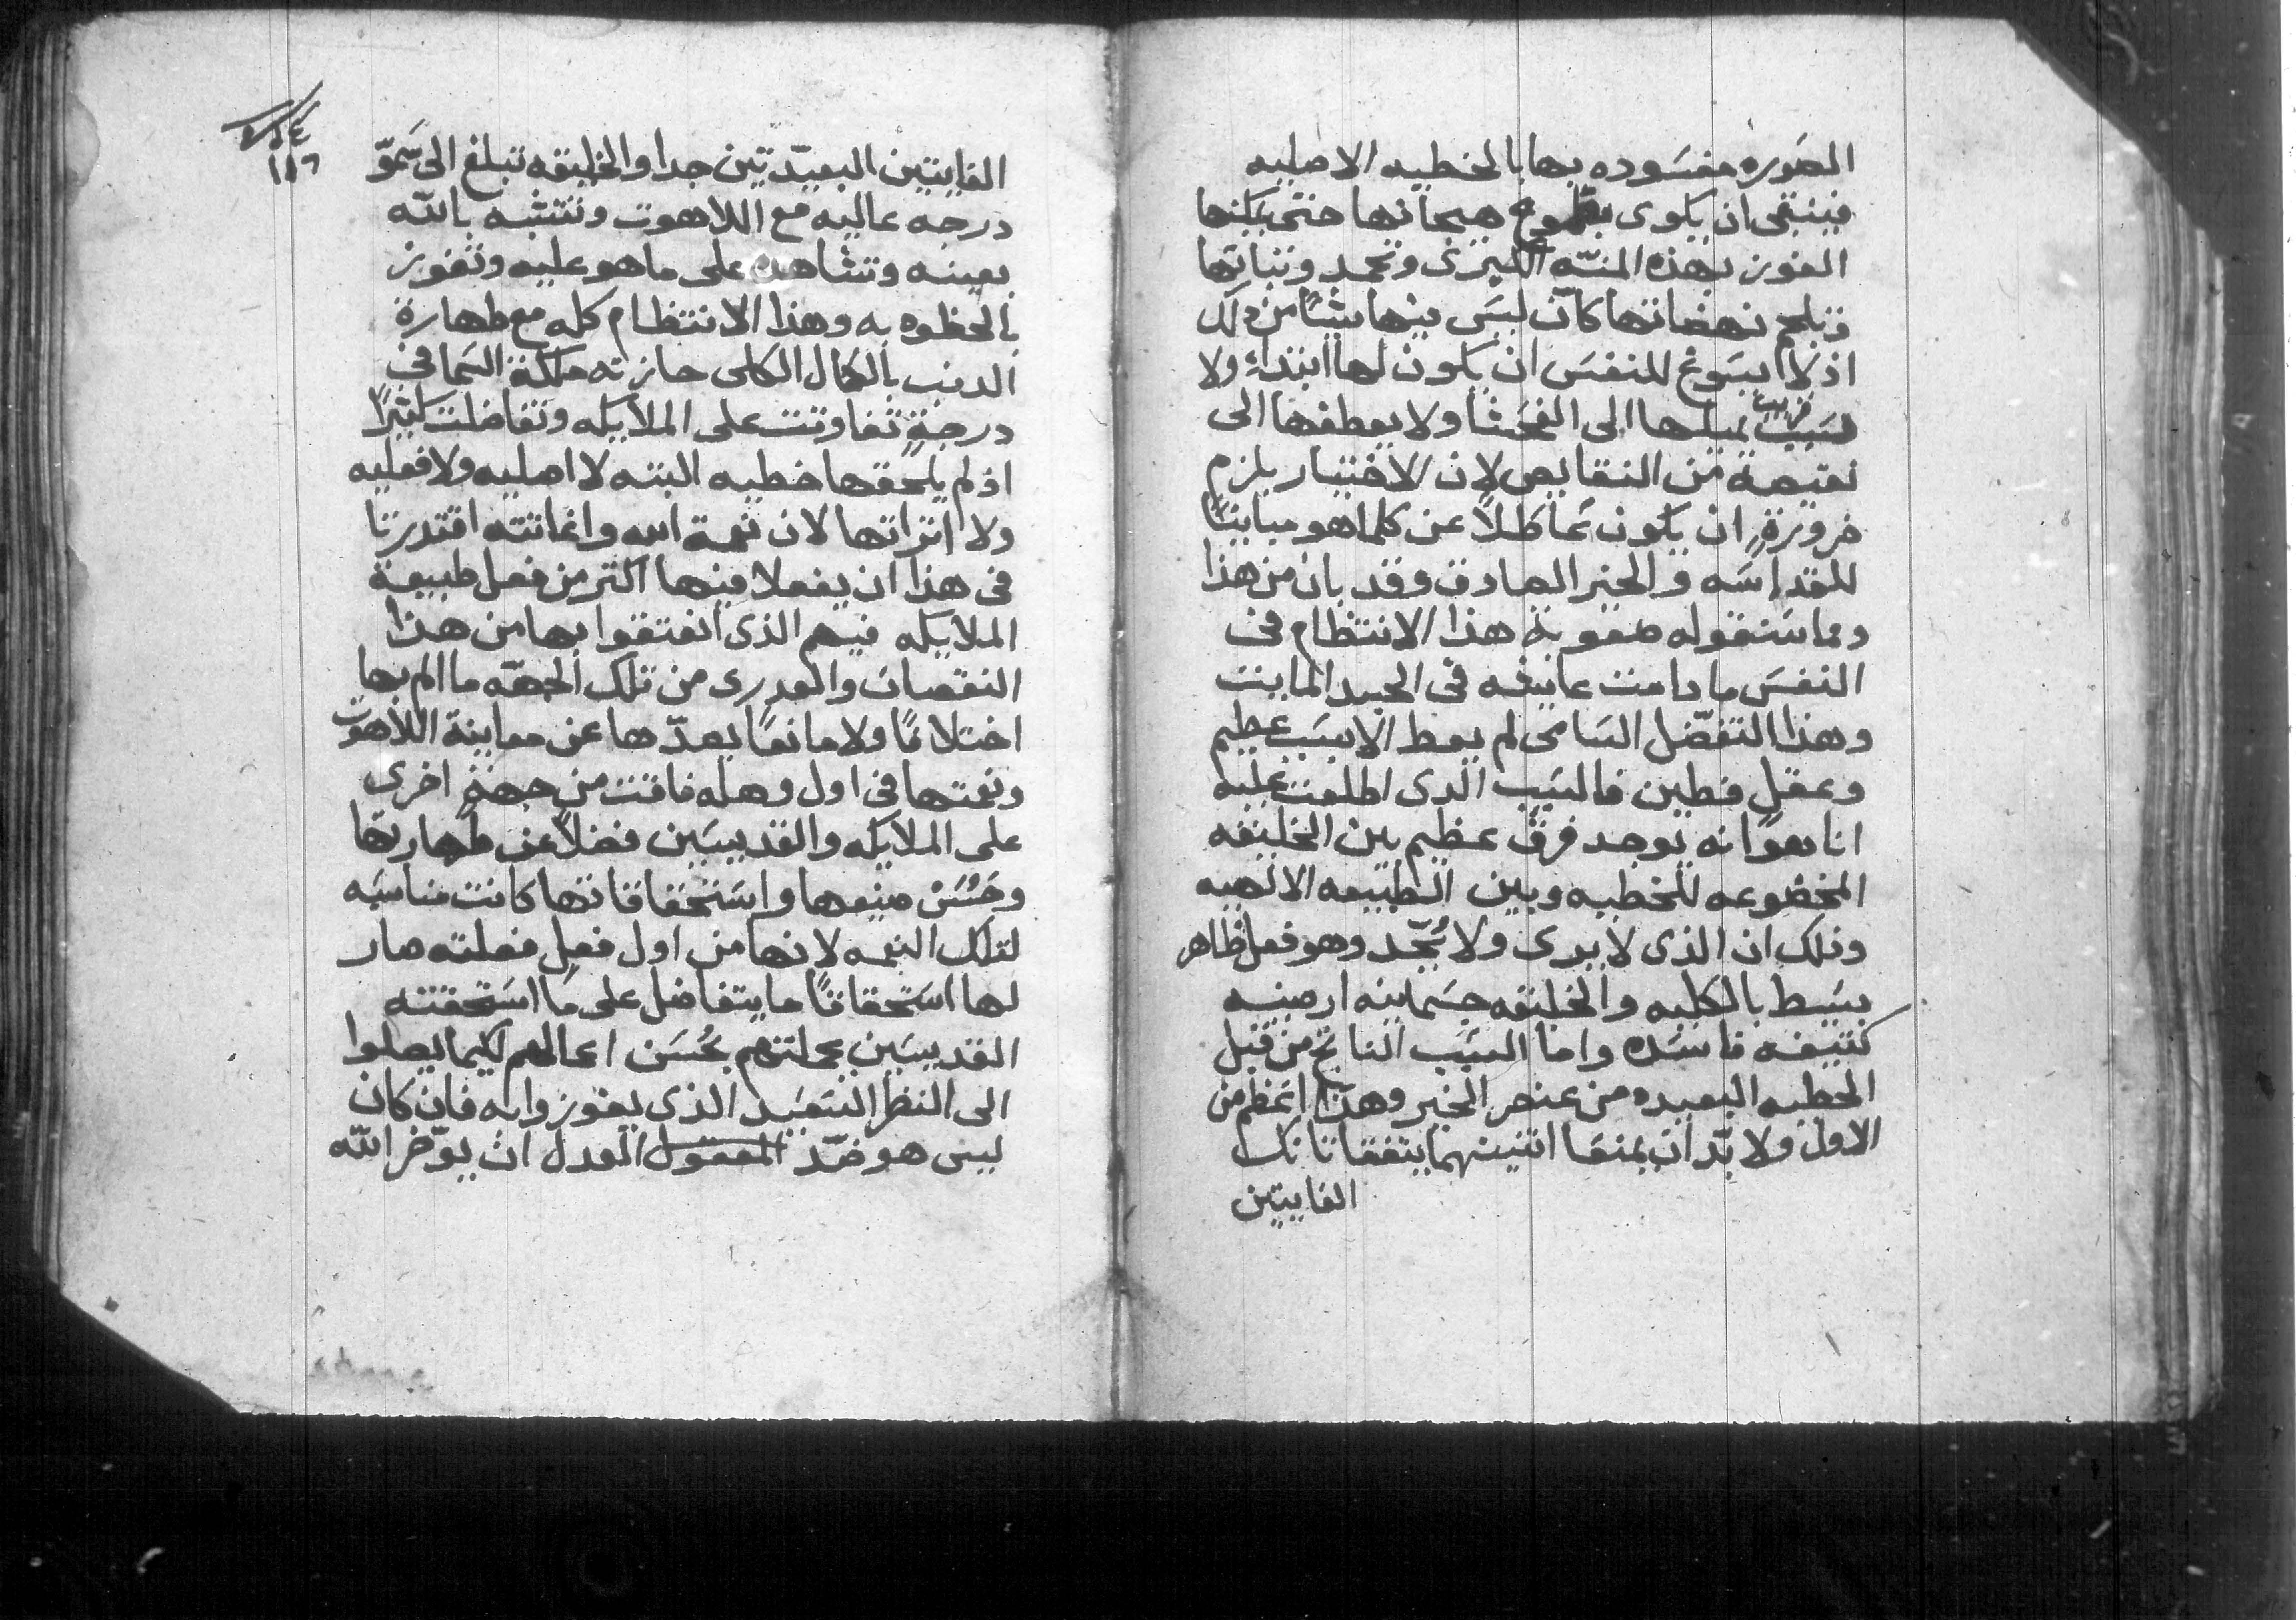 الصَوره مفسَوده بها بالخطيه الاصليه
فينبغى ان يكوى هيجانها حتى يمكنها
الفوز بهذه المنّه الكبرى وتخمد وثباتها
وتلجم نهضاتها كانّ ليسَ بينها شيًا من ذلك
اذ لا يسَوغ للنفسَ ان يكون لها ابتداء ولا
يميلها الى الفحشا ولا يعطفها الى
نقيصة من النقايص لان الاختيار يلزم
ضرورةً ان يكون عَاطلاً عن كلما هو مباينًا
للقداسَه والخير الصادق وقد بان من هذا
ومما سَنقوله صعوبة هذا الانتظام فى
النفسَ ما دامت عايشه فى الجسد المايت
وهذا التفضّل السَامى لم يعط الا بسَبب عظيم
وعقل فطين فالسَبب الذى اطلعت عليه
انا هوانه توجد فرق عظيم بين الخليقه
المخضوعه للخطيه وبين الطبيعه الالهيه
وذلك ان الذى لا يدرى ولا يُحّد وهو فعل ظاهر
بسَيط بالكليه والخليقه جسَمانيه ارضيه
كثيفه فاسَده واما السَبب الناتج من قبل
الخطيه البعيده من عنصر الخير وهذا اعَظم من
الاول ولا بّد ان يمنعَا اثنينهما يتفقا تانك
الغايتين
١١٦
الغايتين البعيدّتين جدا والخليقه تبلغ الى سَموّ
درجه عاليه مع اللاهوت وتتشبه بالله
بعينه وتشاهده على ما هو عليه وتفوز
بالحظوه به وهذا الانتظام كله مع طهارة
الذنب بالكمال الكلى حازته ملكة السَما فى
درجةٍ تفاوتت على الملايكه وتفاضلت كثيرًا
اذ لم يلحقها خطيه البته لا اصليه ولا فعليه
ولا اثراتها لان نعمة الله واغاثته اقتدرتا
فى هذا ان يفعلا فيها اكثر من فعل طبيعة
الملايكه فيهم الذى انعتقوا بها من هذا
النقصان والعدرى من تلك الجهّه ما الم بها
اختلافًا ولا مانعًا يعدّها عن معاينة اللاهوت
ونعمتها فى اول وهله فاقت من جهةٍ اخرى
على الملايكه والقديسَين فضلاً عن طهارتها
وحُسَن صنيعها واسَتحقاقاتها كانت مناسَبه
لتلك النعمه لانها من اول فعلٍ فعلته صار
لها اسَتحقاقًا ما يتفاضل على مَا اسَتحقته
القديسَين بجملتهم بحُسَن اعمالهم لكيما يصلوا
الى النظر السَعيد الذى يفوزوا به فان كان
ليس هو ضّد العدل ان يوّخر الله